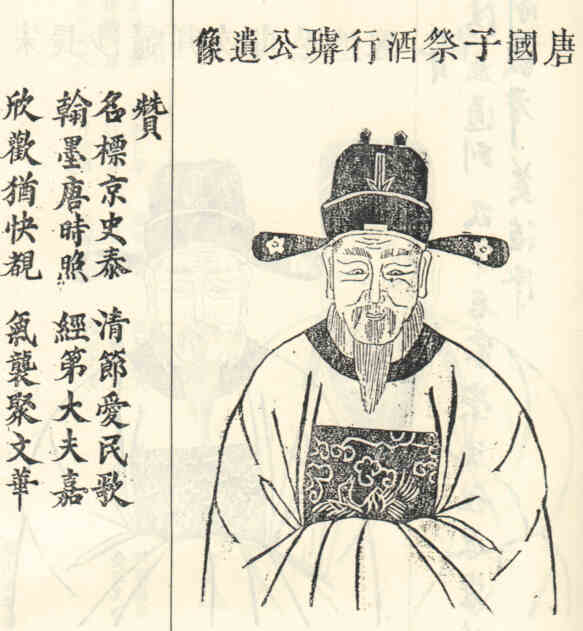 唐國子祭酒行璿公遺像
贊
名標京史泰 清節愛民歌
翰墨唐時照 經第大夫嘉
欣歡猶快覩 氣襲聚文華